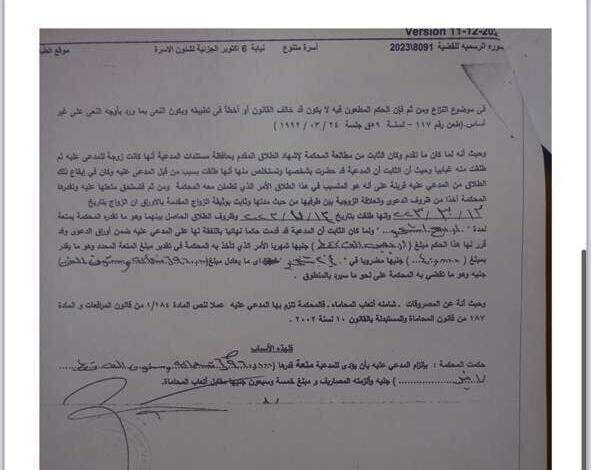 Version 11-12-202
صوره الرسميه للقضية 8091\2023 أسرة متنوع نيابة 6 اكتوبر الجزئية لشئون الاسرة موقع الطب
فى موضوع النزاع ومن ثم فإن الحكم المطعون فيه لا يكون قد خالف القانون أو أخطأ فى تطبيقه ويكون النعى بما ورد بأوجه النعى على غير
أساس.(طعن رقم ١١٧ - لسنة ٥٩ق جلسة ٢٤ / ٠٣ / ١٩٩٢ )
وحيث أنه لما كان ما تقدم وكان الثابت من مطالعة المحكمة لإشهاد الطلاق المقدم بحافظة مستندات المدعية أنها كانت زوجة للمدعى عليه ثم
طلقت منه غيابيا وحيث أن الثابت أن المدعية قد حضرت بشخصها وتستخلص منها أنها طلقت بسبب من قبل المدعى عليه وكان فى إيقاع ذلك
الطلاق من المدعى عليه قرينة على أنه هو المتسبب فى هذا الطلاق الأمر الذى تطمئن معه المحكمة ومن ثم فتستحق متعتها عليه وتقدرها
المحكمة أخذا من ظروف الدعوى والعلاقة الزوجية بين طرفيها من حيث مدتها وثابت بوثيقة الزواج المقدمة بالاوراق ان الزواج بتاريخ
وانها طلقت بتاريخ وظروف الطلاق الحاصل بينهما وهو ما تقدره المحكمة بمتعة
لمدة ولما كان الثابت أن المدعية قد قدمت حكما نهائيا بالنفقة لها على المدعى عليه ضمن أوراق الدعوى وقد
قرر لها هذا الحكم مبلغ ( ) جنيها شهريا الأمر الذى تأخذ به المحكمة فى تقدير مبلغ المتعة المحدد وهو ما يقدر
بمبلغ ( ) جنيها مضروبا فى اى ما يعادل مبلغ(
جنيه وهو ما تقضي به المحكمة على نحو ما سيرد بالمنطوق
وحيث أنه عن المصروفات . شامله أتعاب المحاماه. فالمحكمة تلزم بها المدعى عليه عملا لنص المادة ١/١٨٤ من قانون المرافعات و المادة
١٨٧ من قانون المحاماة والمستبدلة بالقانون ١٠ لسنة ٢٠٠٢
فلهذه الأسباب
حكمت المحكمة : بإلزام المدعى عليه بأن يؤدى للمدعية متعة قدرها (
) جنيه وألزمته المصاريف و مبلغ خمسة وسبعون جنيها مقابل أتعاب المحاماة.